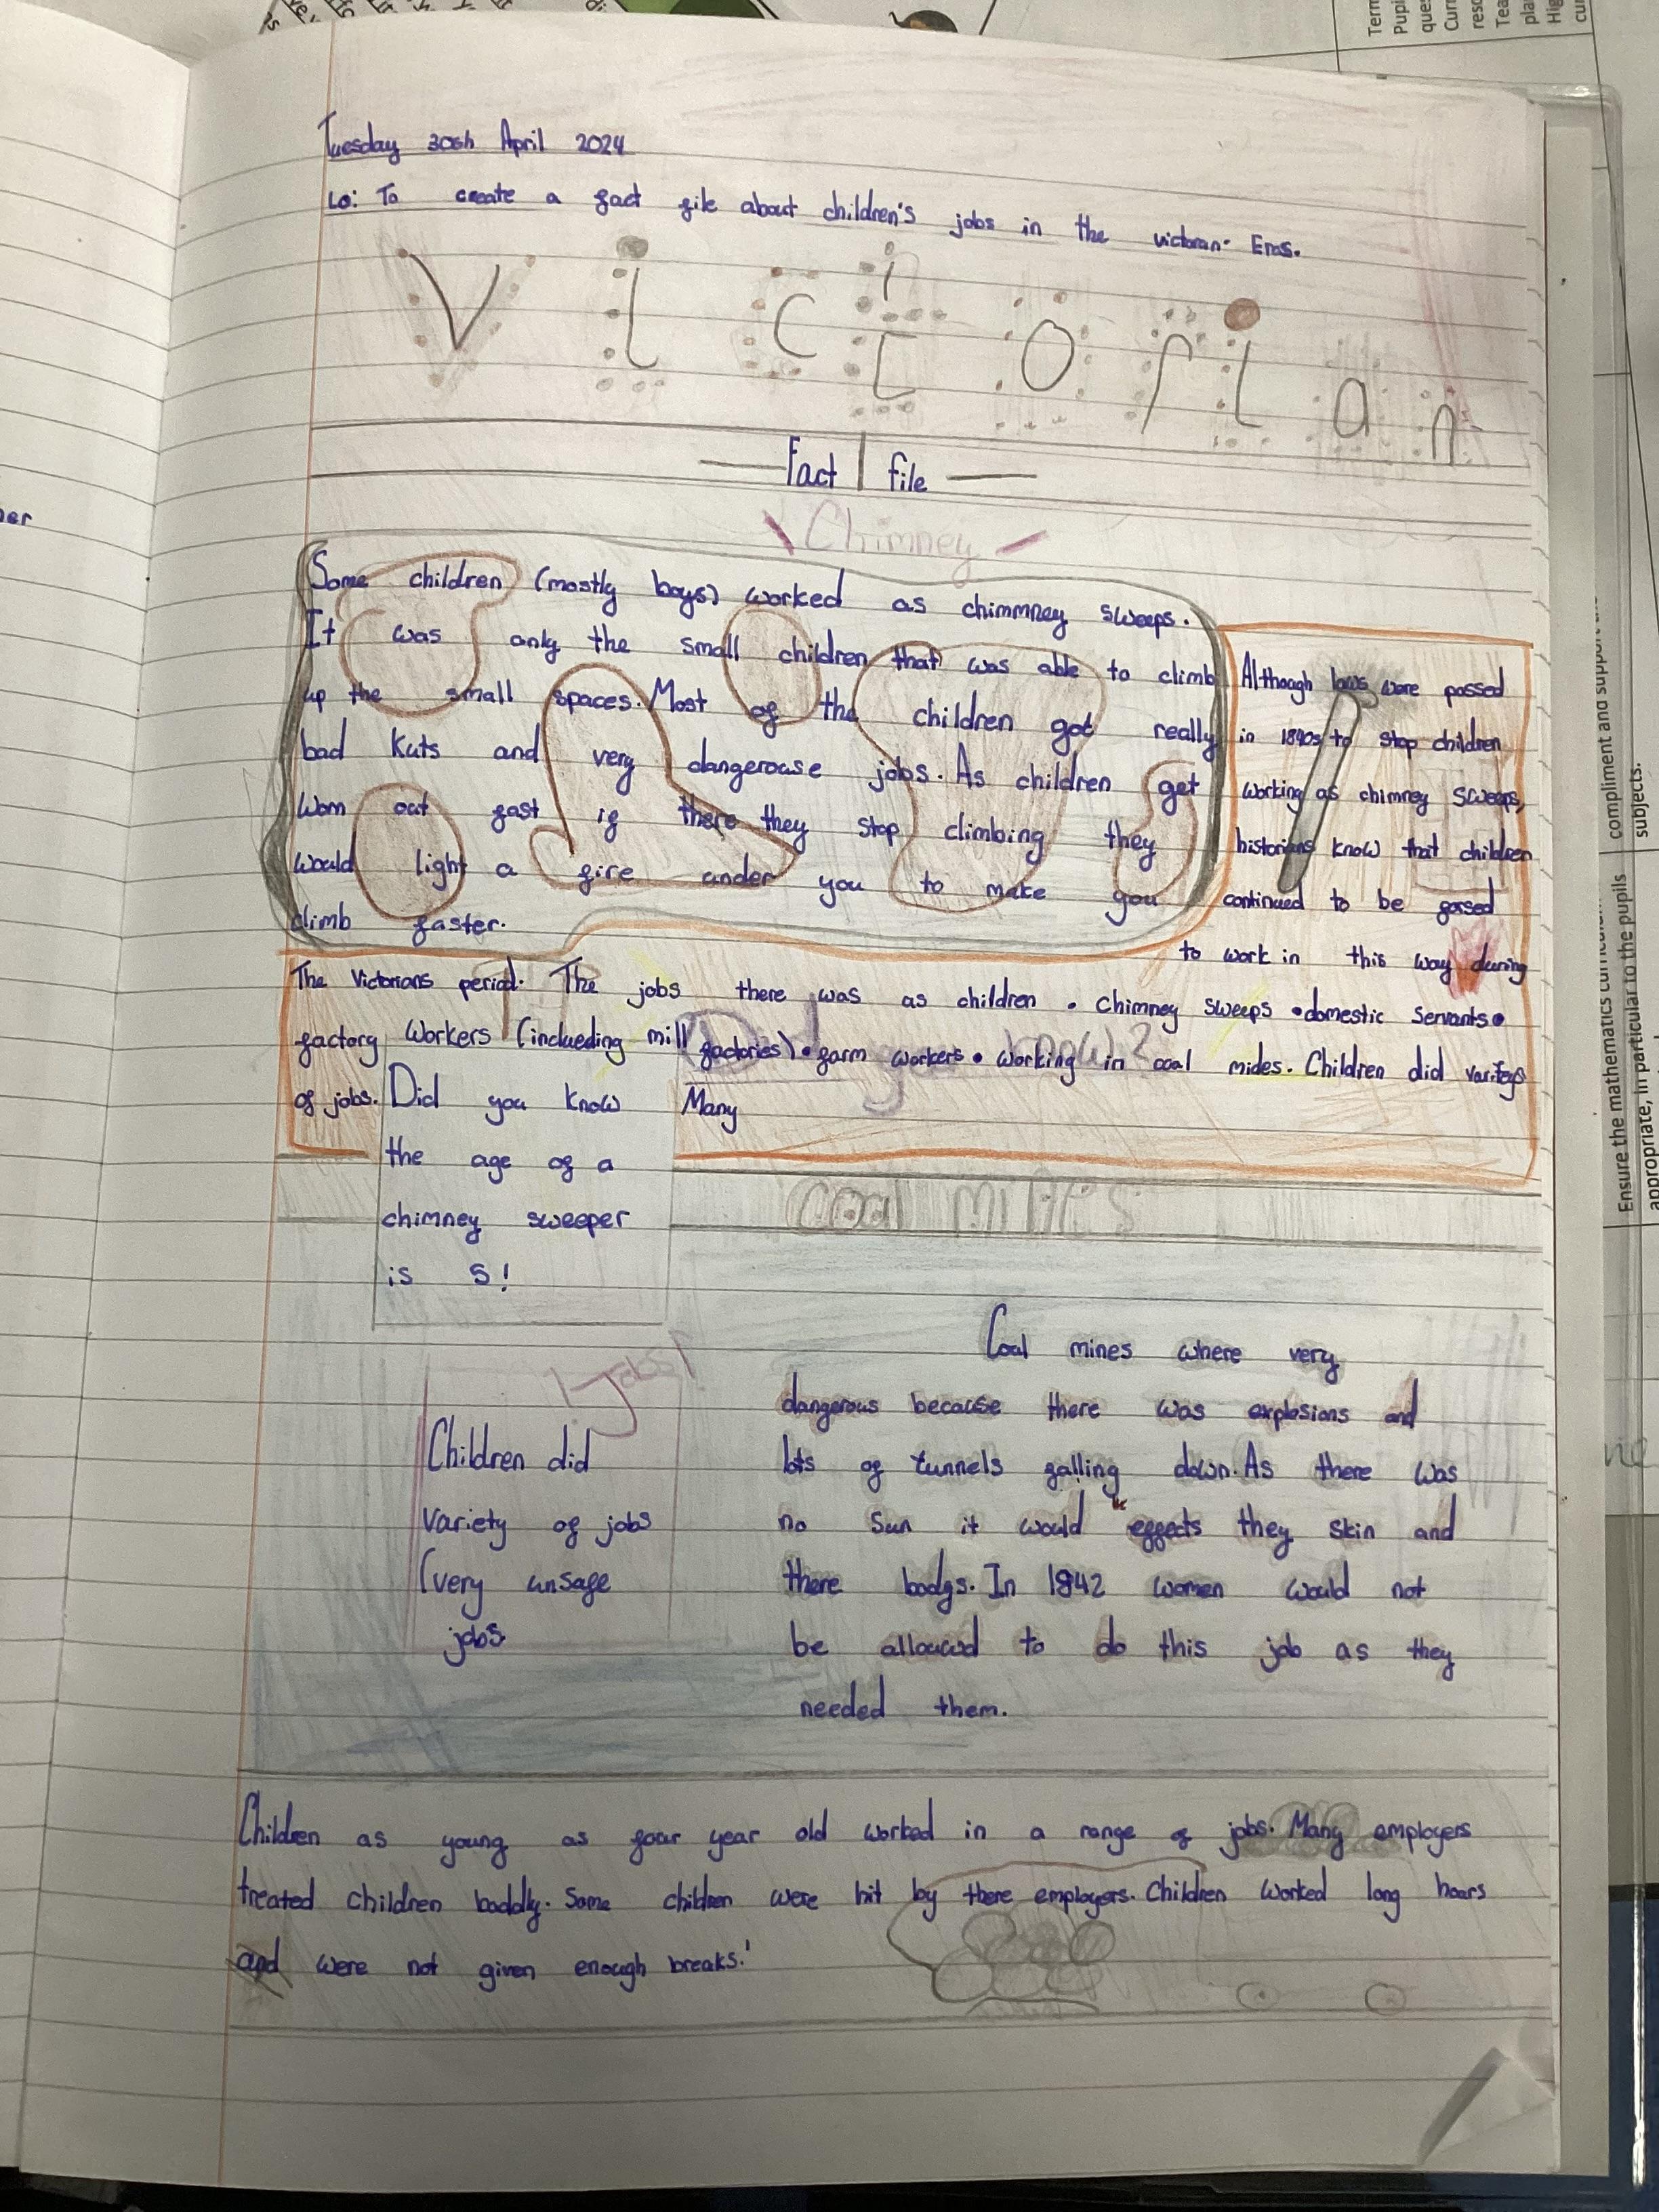 Tuesday 30th April 2024
Lo: To create a fact file about children's jobs in the victoran Eras.
Victorian
Fact file
Chimney
Some children (mostly boys) worked as chimmney sweeps.
It was only the small children that was able to climb
up the small spaces. Most of the children got really
bad kuts and very dangerouse jobs. As children get
worn out fast if there they stop climbing they
would light a fire under you to make you
climb faster.
Although laws were passed
in 1840s to stop children
working as chimney sweeps,
historians know that children
continued to be forsed
to work in this way during
The Victorians period. The jobs there was as children • chimney sweeps • domestic servants •
factory workers (inclueding mill factories) • farm workers • working in coal mides. Children did variteys
of jobs.
Many
Did you know
the age of a
chimney sweeper
is 5!
Did you know?
Coal mines
Jobs!
Children did
variety of jobs
(very unsafe
jobs
Coal mines where very
dangerous because there was explosions and
lots of tunnels falling down. As there was
no sun it would effects they skin and
there bodys. In 1842 women would not
be allouwd to do this job as they
needed them.
Children as young as four year old worked in a range of jobs. Many employers
treated children baddly. Some children were hit by there employers. Children worked long hours
and were not given enough breaks!
compliment and support
Ensure the mathematics
appropriate, in particular to the pupils
subjects.